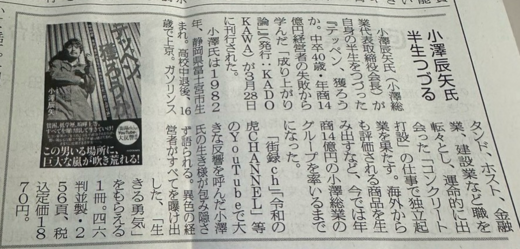 小澤辰矢氏
半生つづる
小澤辰矢氏(小澤総
業代表取締役会長)が
自身の半生をつづった
『テッペン、獲ろう
か。中卒40歳・年商14
億円経営者の失敗から
学んだ「成り上がり
論』(発行・KADO
KAWA)が3月28日
に刊行された。
小澤氏は1982
年、静岡県富士宮市生
まれ。高校中退後、16
歳で上京。ガソリンス
タンド、ホスト、金融
業、建設業など職を
転々とし、運命的に出
会った「コンクリート
打設」の仕事で独立起
業を果たす。海外から
も評価される商品を生
み出すなど、今では年
商14億円の小澤総業の
グループを率いるまで
になった。
「街録ch」「令和の
虎CHANNEL」等
のYouTubeで大
きな反響を呼んだ小澤
氏の生き様が包み隠さ
ず語られる。異色の経
営者がすべてを曝け出
した、「生
きる勇気」
をもらえる
1冊。四六
判並製・2
56頁、税
込定価18
70円。
テッペン、
獲ろうか。
小澤辰矢
この男いる場所に、
巨大な嵐が吹き荒れる!